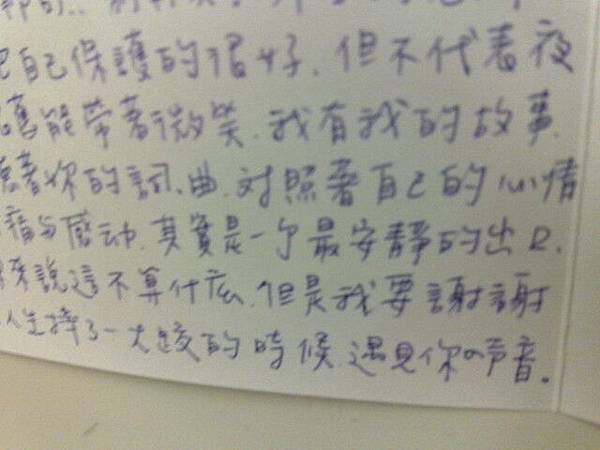 把自己保護的很好.但不代表夜
舊能帶著微笑.我有我的故事.
聽著你的詞.曲.對照著自己的心情
痛与感动.其實是一个最安靜的出口.
來說這不算什麼.但是我要謝謝
人生摔了一大跤的時候.遇見你の声音.